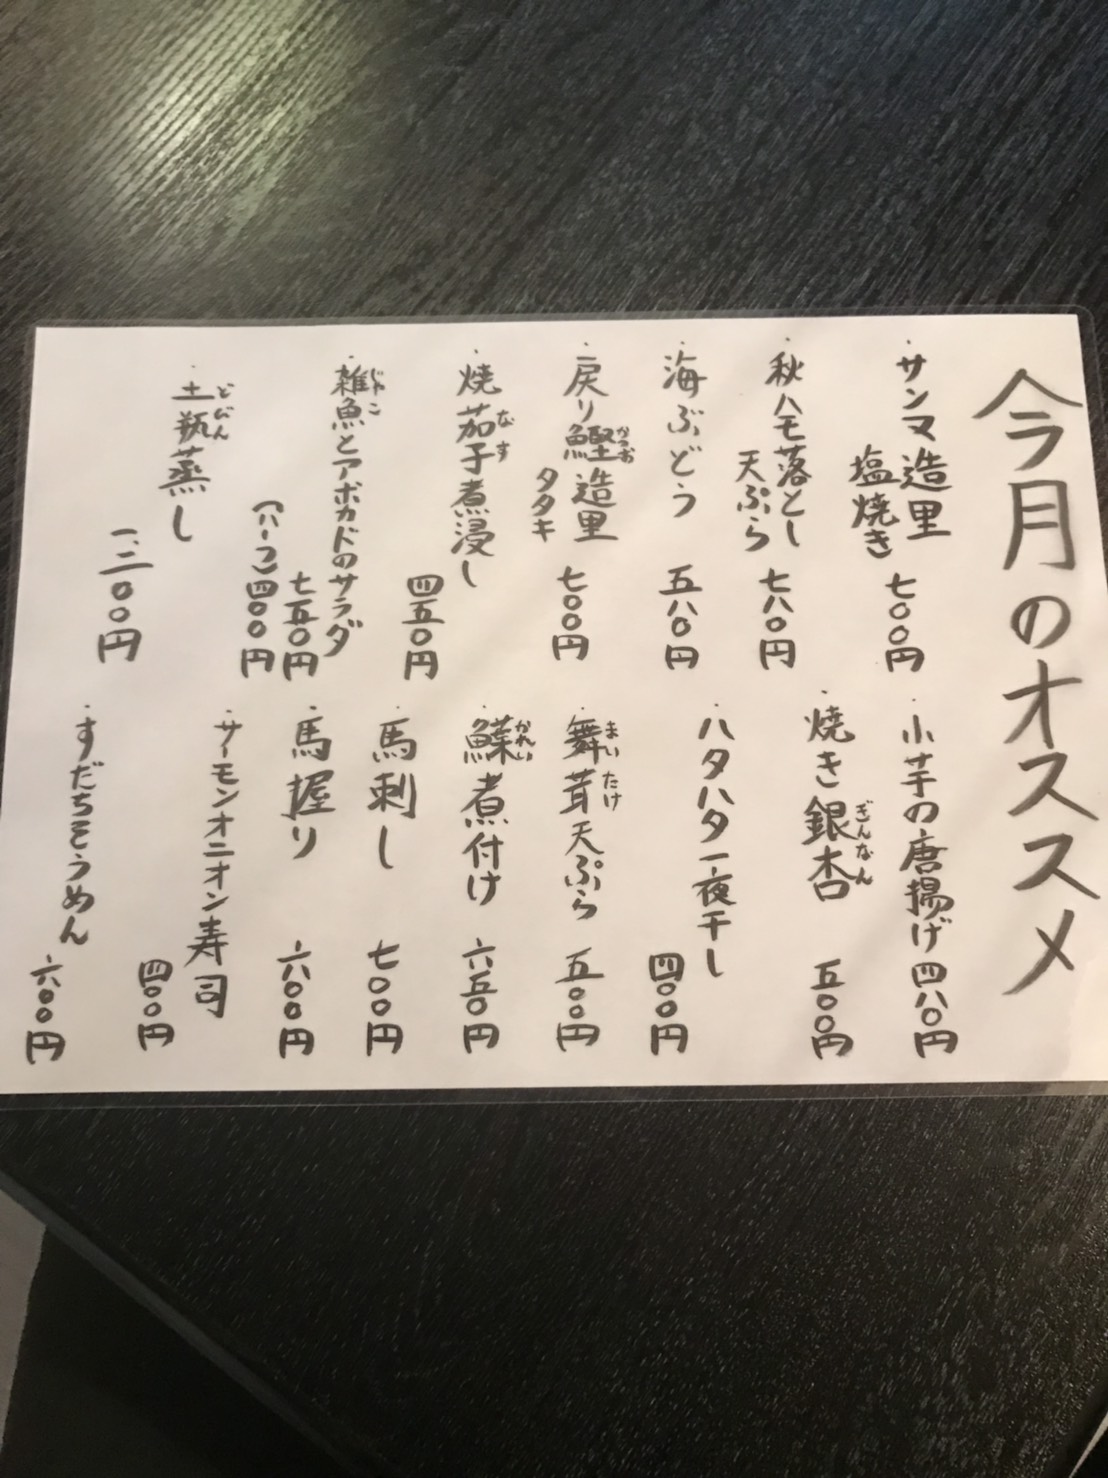 今月のオススメ
・サンマ造里
塩焼き
七〇〇円
・秋ハモ落とし
天ぷら
七八〇円
・海ぶどう 五八〇円
・戻り鰹造里
かつお
タタキ
七〇〇円
・焼茄子煮浸し
なす
四五〇円
・雑魚とアボカドのサラダ
じゃこ
七五〇円
(ハーフ)四〇〇円
・土瓶蒸し
どびん
一、二〇〇円
・小芋の唐揚げ 四八〇円
・焼き銀杏
ぎんなん
五〇〇円
・ハタハタ一夜干し
四〇〇円
・舞茸天ぷら
まいたけ
五〇〇円
・鰈煮付け
かれい
六五〇円
・馬刺し 七〇〇円
・馬握り 六〇〇円
・サーモンオニオン寿司
四〇〇円
・すだちそうめん
六〇〇円